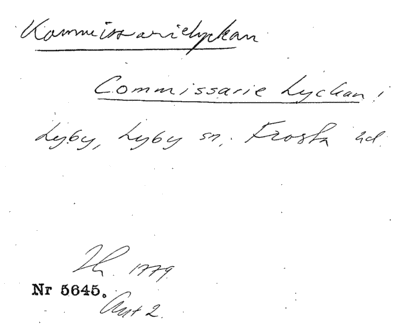 Kommissarielyckan
Commissarie Lyckan,
Lyby, Lyby sn, Frosta hd
1779
Nr 5645.